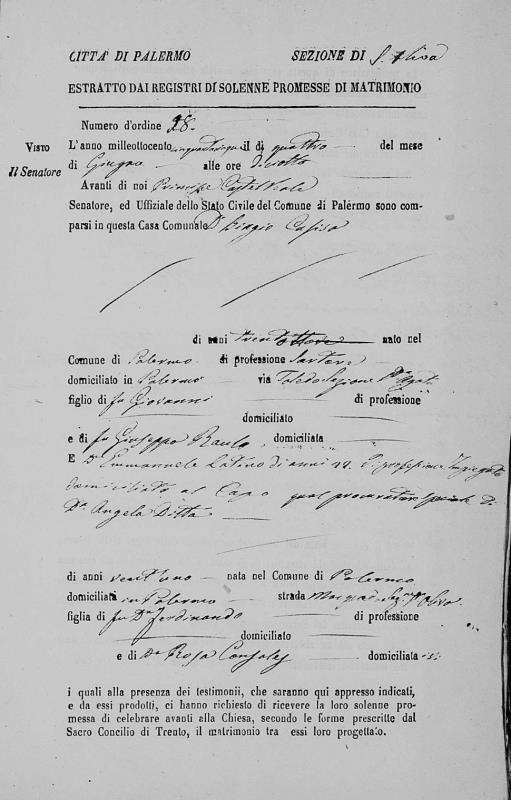 CITTÀ DI PALERMO SEZIONE DI S. Oliva
ESTRATTO DAI REGISTRI DI SOLENNE PROMESSE DI MATRIMONIO
Numero d'ordine 28.
Visto
Il Senatore
L'anno milleottocento cinquantacinque il dì quattro del mese
di Giugno alle ore diciotto
Avanti di noi Principe
Senatore, ed Uffiziale dello Stato Civile del Comune di Palermo sono com-
parsi in questa Casa Comunale D. Biagio
di anni nato nel
Comune di Palermo di professione
domiciliato in Palermo via Toledo Sezione
figlio di fu Giovanni di professione
domiciliato
e di fu Giuseppa domiciliata
E Dn. Emmanuele Latino di anni di professione Impiegato
domiciliato al Capo qual procuratore speciale di
Da. Angela Ditta
di anni ventuno nata nel Comune di Palermo
domiciliata in Palermo strada
figlia di fu Dn. Ferdinando di professione
domiciliato
e di Da. Rosa Consales domiciliata ivi
i quali alla presenza dei testimonii, che saranno qui appresso indicati,
e da essi prodotti, ci hanno richiesto di ricevere la loro solenne pro-
messa di celebrare avanti alla Chiesa, secondo le forme prescritte dal
Sacro Concilio di Trento, il matrimonio tra essi loro progettato.